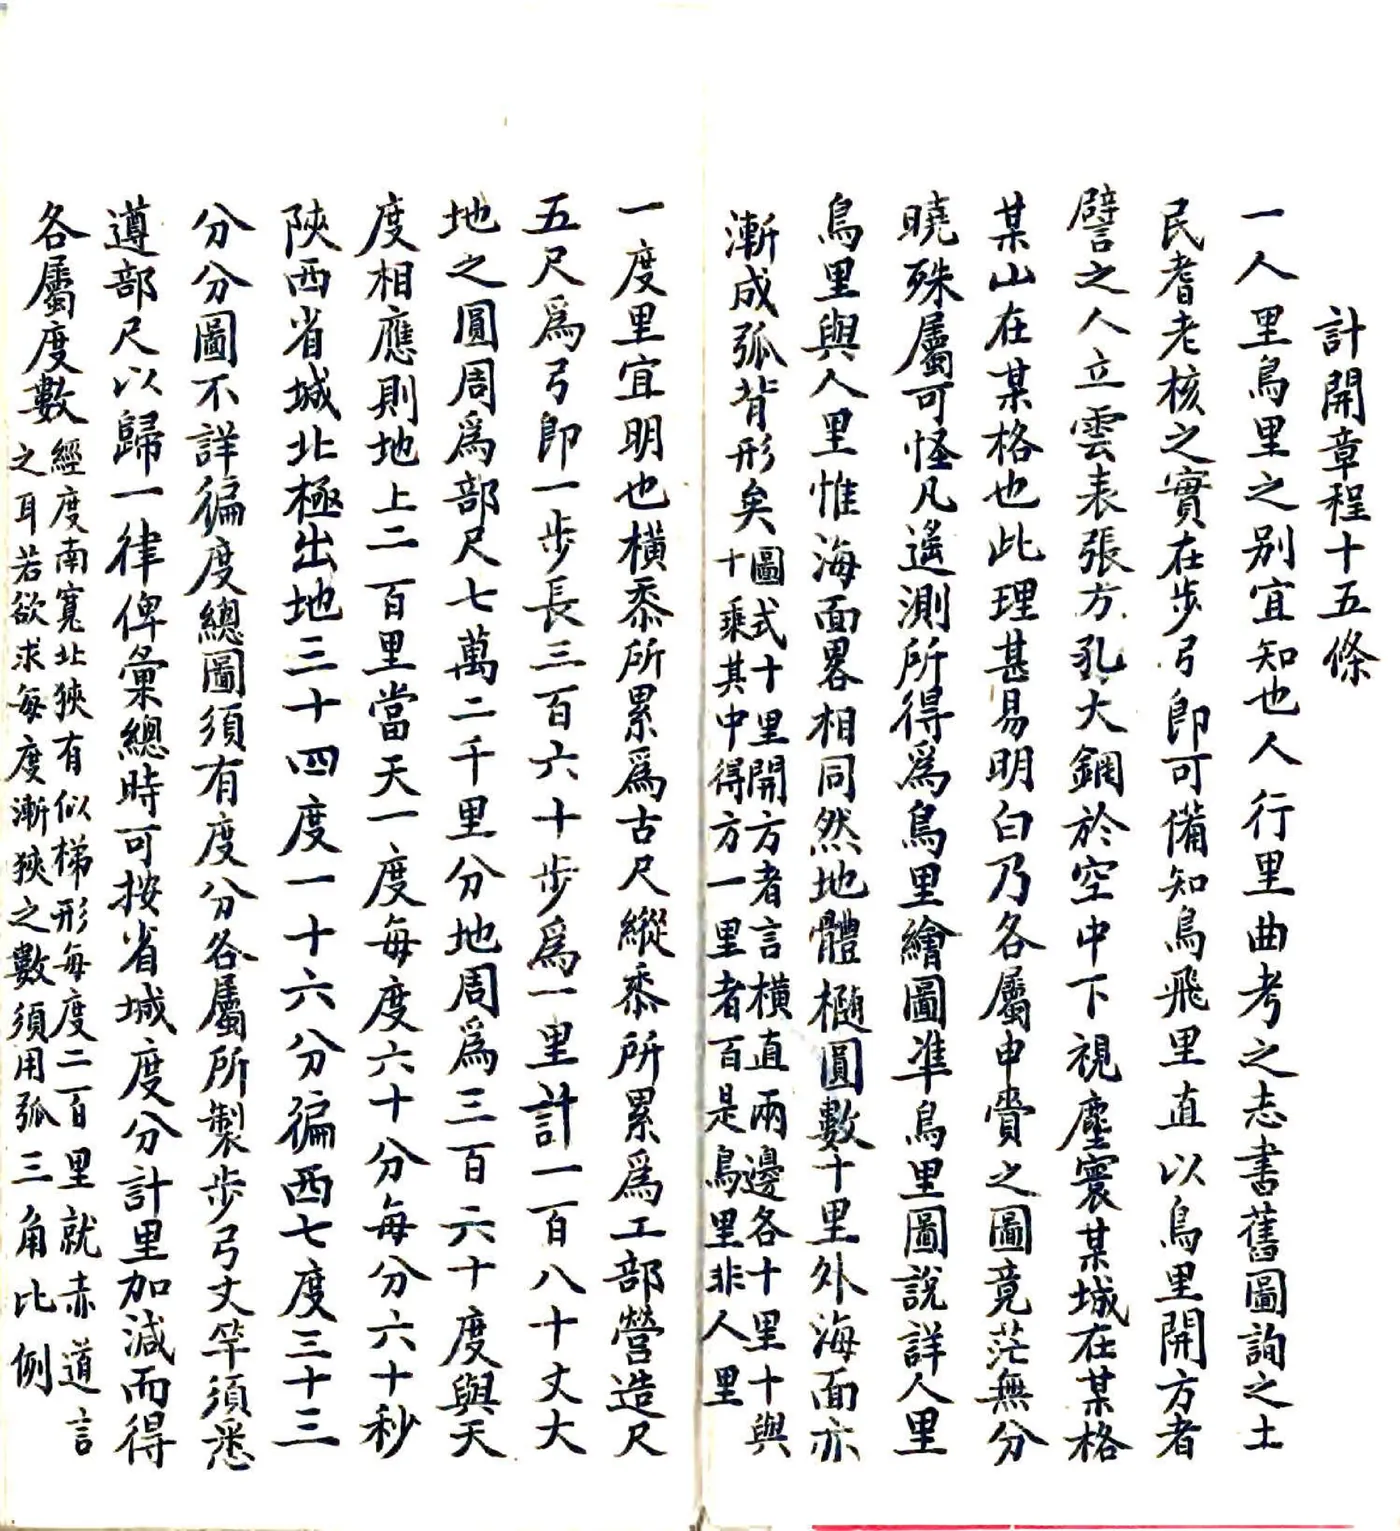 計開章程十五條
一人里鳥里之别宜知也人行里曲考之志書舊圖詢之土
民耆老核之實在步弓即可備知鳥飛里直以鳥里開方者
譬之人立雲表張方孔大綱於空中下視塵寰某城在某格
某山在某格也此理甚易明白乃各屬申賫之圖竟茫無分
曉殊屬可怪凡遙測所得為鳥里繪圖準鳥里圖說詳人里
鳥里與人里惟海面畧相同然地體橢圓數十里外海面亦
漸成弧背形矣
圖式十里開方者言橫直兩邊各十里十與
十乘其中得方一里者百是鳥里非人里
一度里宜明也橫黍所累為古尺縱黍所累為工部營造尺
五尺為弓即一步長三百六十步為一里計一百八十丈大
地之圓周為部尺七萬二千里分地周為三百六十度與天
度相應則地上二百里當天一度每度六十分每分六十秒
陝西省城北極出地三十四度一十六分偏西七度三十三
分分圖不詳偏度總圖須有度分各屬所製步弓丈竿須悉
遵部尺以歸一律俾彙總時可按省城度分計里加減而得
各屬度數
經度南寬北狹有似梯形每度二百里就赤道言
之耳若欲求每度漸狹之數須用弧三角比例